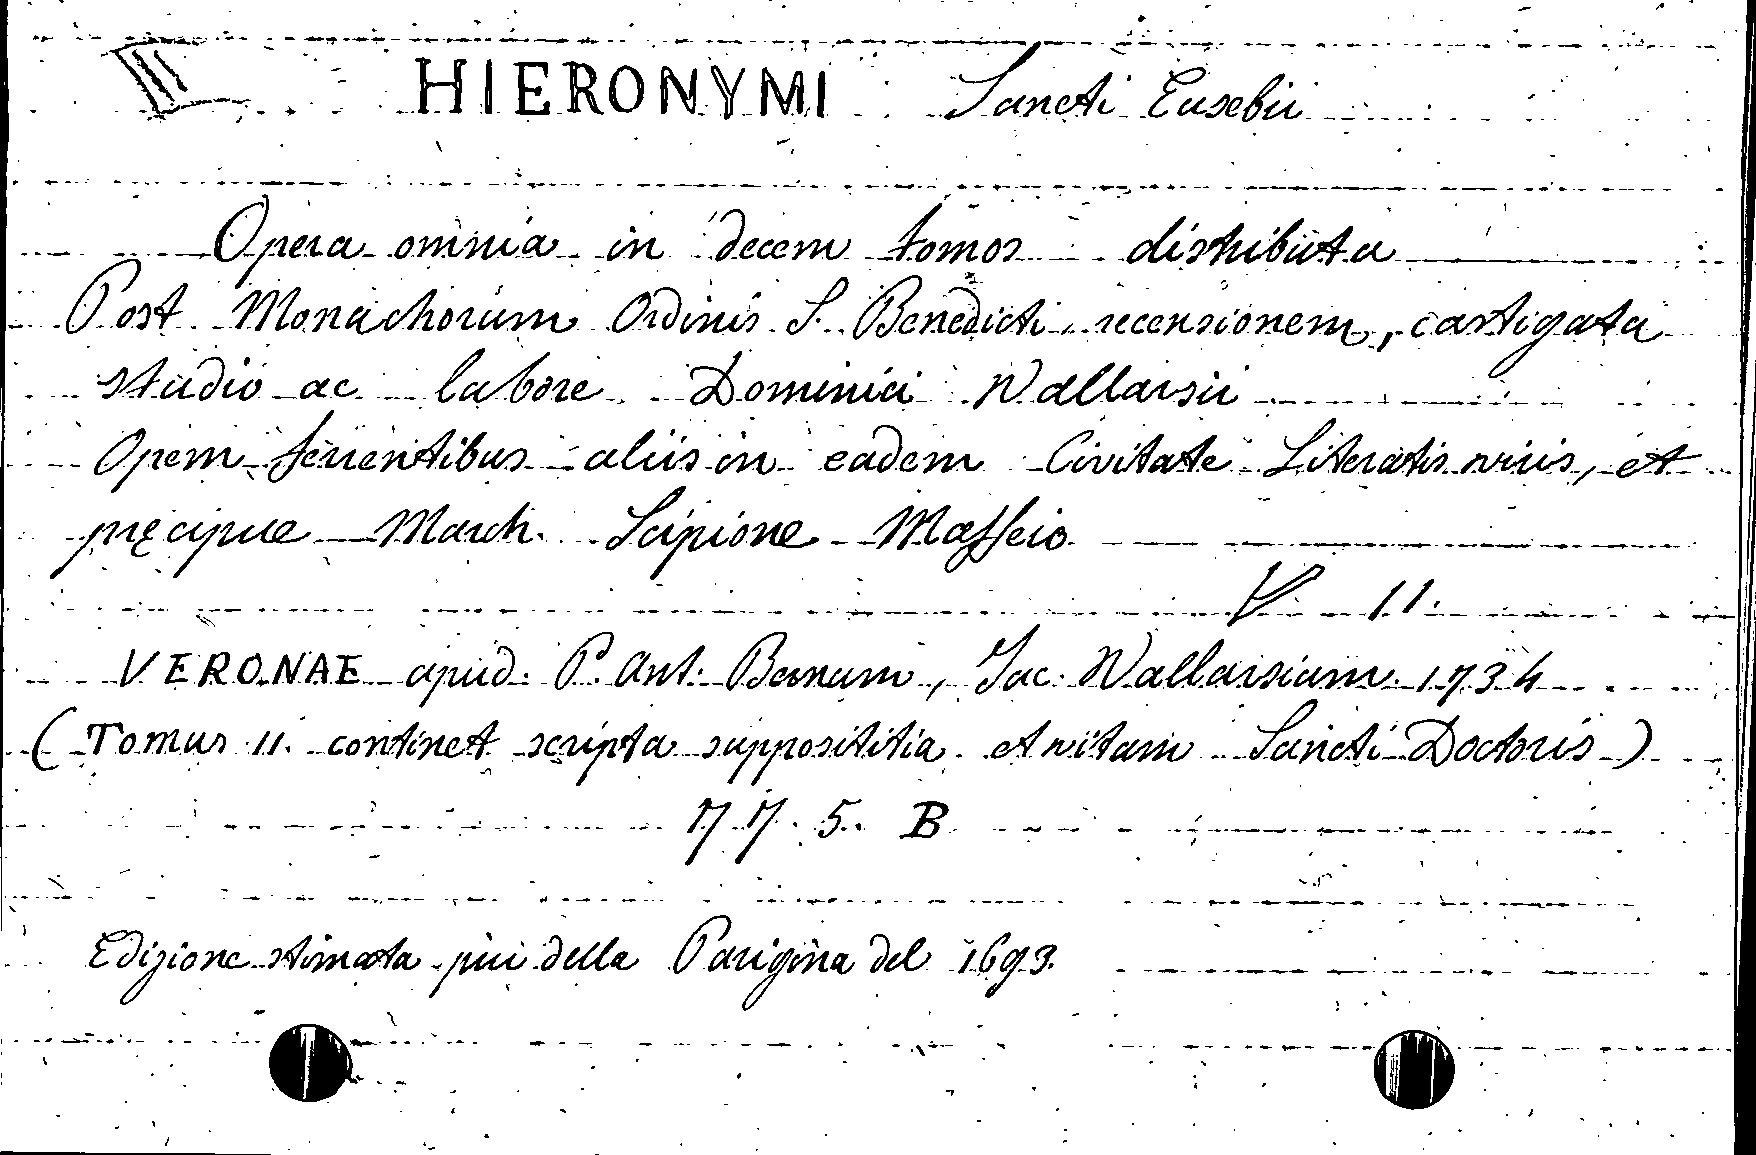 III HIERONYMI Sancti Eusebii
Opera omnia in decem tomos distributa
Post Monachorum Ordinis S. Benedicti recensionem, castigata
studio ac labore Dominici Vallarsii
Opem ferentibus aliis in eadem Civitate Literatis viris, et
pręcipue March. Scipione Maffeio
V 11.
VERONAE apud. P. Ant. Bernum, Jac. Vallarsium 1734
(Tomus 11. continet scripta supposititia et vitam Sancti Doctoris)
77. 5. B
Edizione stimata più della Parigina del 1693.